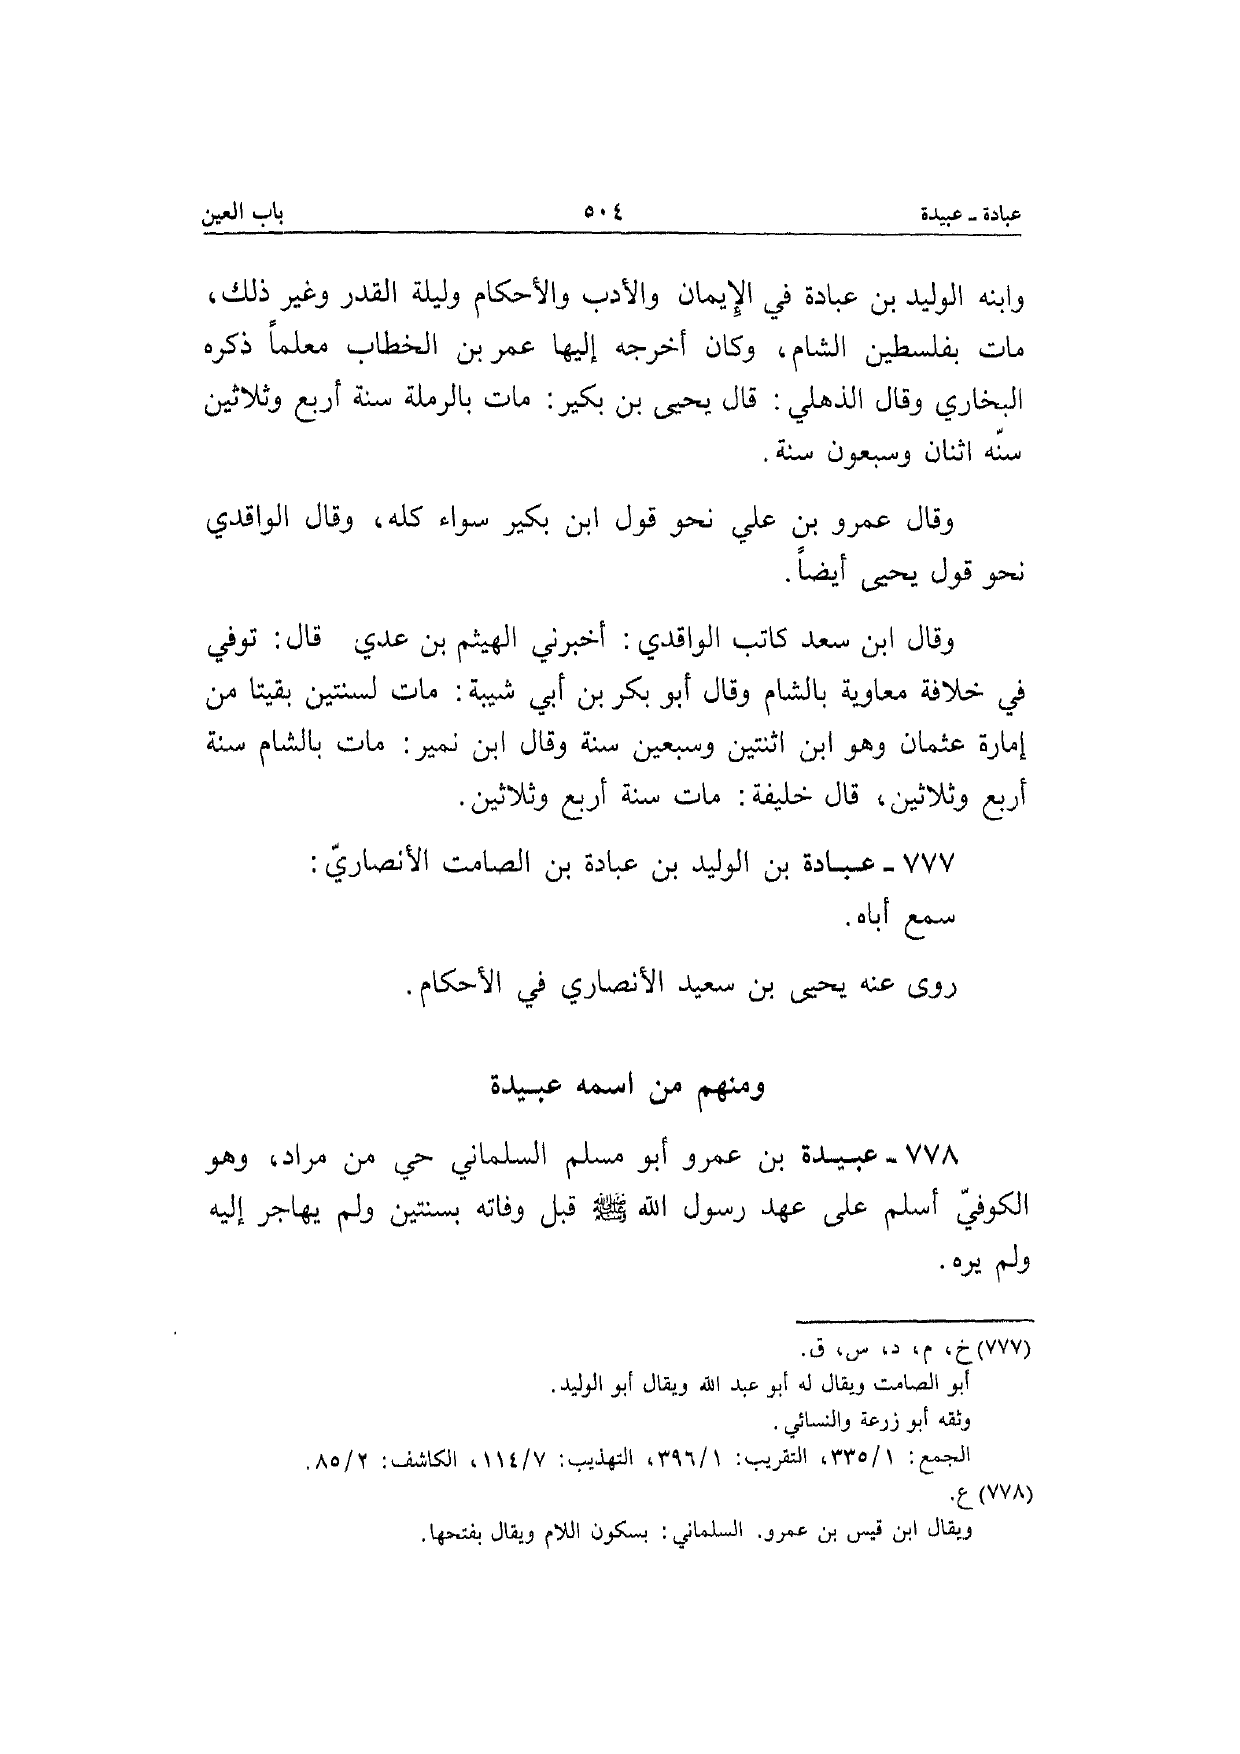 عبادة ـ عبيدة ٥٠٤ باب العين
وابنه الوليد بن عبادة في الإيمان والأدب والأحكام وليلة القدر وغير ذلك،
مات بفلسطين الشام، وكان أخرجه إليها عمر بن الخطاب معلماً ذكره
البخاري وقال الذهلي: قال يحيى بن بكير: مات بالرملة سنة أربع وثلاثين
سنّه اثنان وسبعون سنة.
وقال عمرو بن علي نحو قول ابن بكير سواء كله، وقال الواقدي
نحو قول يحيى أيضاً.
وقال ابن سعد كاتب الواقدي: أخبرني الهيثم بن عدي قال: توفي
في خلافة معاوية بالشام وقال أبو بكر بن أبي شيبة: مات لسنتين بقيتا من
إمارة عثمان وهو ابن اثنتين وسبعين سنة وقال ابن نمير: مات بالشام سنة
أربع وثلاثين، قال خليفة: مات سنة أربع وثلاثين.
٧٧٧ ـ عبادة بن الوليد بن عبادة بن الصامت الأنصاريّ:
سمع أباه.
روى عنه يحيى بن سعيد الأنصاري في الأحكام.
ومنهم من اسمه عبيدة
٧٧٨ ـ عبيدة بن عمرو أبو مسلم السلماني حي من مراد، وهو
الكوفيّ أسلم على عهد رسول الله ﷺ قبل وفاته بسنتين ولم يهاجر إليه
ولم يره.
(٧٧٧) خ، م، د، س، ق.
أبو الصامت ويقال له أبو عبد الله ويقال أبو الوليد.
وثقه أبو زرعة والنسائي.
الجمع: ٣٣٥/١، التقريب: ٣٩٦/١، التهذيب: ١١٤/٧، الكاشف: ٨٥/٢.
(٧٧٨) ع.
ويقال ابن قيس بن عمرو. السلماني: بسكون اللام ويقال بفتحها.